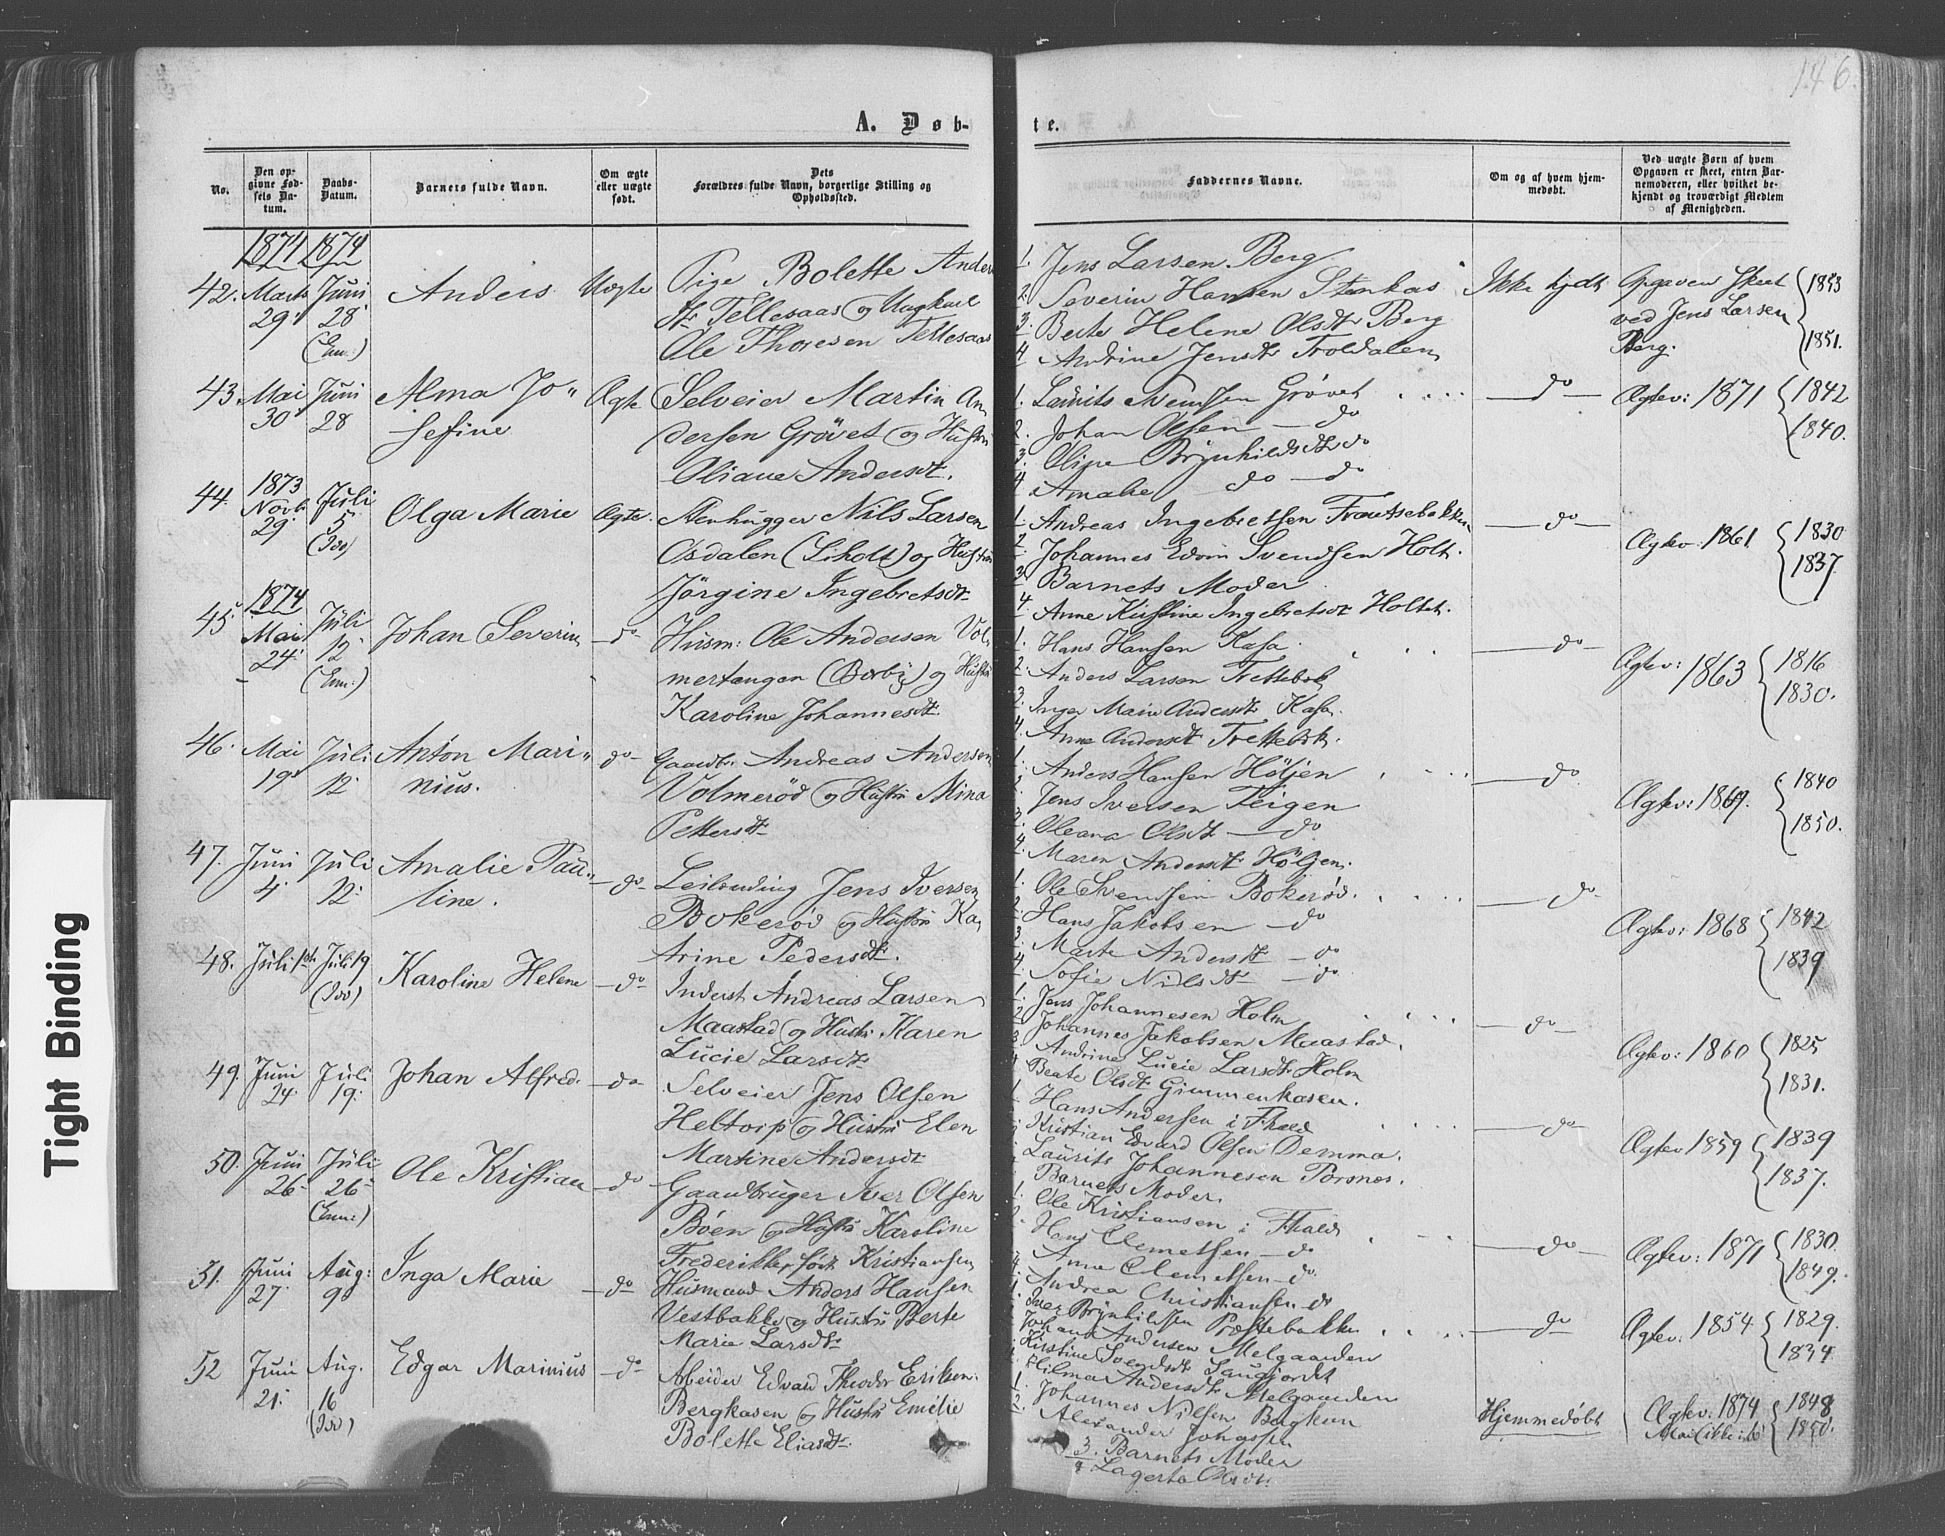 146.
A. Døb-
te.
No.
Den op-
givne Fød-
sels Da-
tum.
Daabs-
Datum.
Barnets fulde Navn.
Om ægte
eller uægte
født.
Dets
Forældres fulde Navn, borgerlige Stilling og
Opholdssted.
Faddernes Navne.
Om og af hvem hjem-
medøbt.
Ved uægte Børn af hvem
Opgaven er skeet, enten Bar-
nemoderen, eller hvilket be-
kjendt og troværdigt Medlem
af Menigheden.
1874 1874
42. Marts 29. Juni 28 (Enn:) Anders Uægte
Pige Bolette Anders
dtr Tellesaas og Ungkarl
Ole Thoresen Tellesaas
1. Jens Larsen Berg
2. Severin Hansen Stenkas
3. Berte Helene Olsdtr Berg
4. Andrine Jensdtr Troldalen
Ikke hjdt
Opgaven skeet
ved Jens Larsen
Berg.
1853
1851.
43. Mai 30 Juni 28 Alma Jo-
sefine
Ægte
Selveier Martin An
dersen Grøvet og Hustru
Oliane Andersdt.
1. Laurits Svensen Grøvet
2. Johan Olsen - do
3. Oline Brynhildsdtr do
4. Amalie do - do
do
Ægtev: 1871
1842
1840.
44. 1873 Novb. 29. Juli 5 (Iddo) Olga Marie Ægte.
Stenhugger Nils Larsen
Osdalen (Liholt) og Hustru
Jørgine Ingebretsdt
1. Andreas Ingebretsen Frautsebakken
2. Johannes Edvin Svendsen Holt.
3. Barnets Moder
4. Anne Kirstine Ingebretsdt Holtet.
do
Ægtev: 1861
1830
1837.
45. 1874 Mai 24. Juli 12 (Enn:) Johan Severin do
Husm: Ole Andersen Vol-
mertangen (Berby) og Hustru
Karoline Johannesdt.
1. Hans Hansen Kasa
2. Anders Larsen Trettebok
3. Inger Marie Andersdt Kasa.
4. Anne Andersdt Trettebok.
do
Ægtev: 1863
1816
1830.
46. Mai 19. Juli 12. Anton Mari-
nius.
do
Gaardbr. Andreas Andersen
Volmerød og Hustru Mina
Pettersdt
1. Anders Hansen Höljen
2. Jens Iversen Teigen
3. Oleana Olsdt - do
4. Maren Andersdt Höljen.
do
Ægtev: 1869.
1840
1850.
47. Juni 4. Juli 12. Amalie Pau-
line.
do
Leilending Jens Iversen
Bokerød og Hustru Ka
trine Pedersdt.
1. Ole Svensen Bokerød.
2. Hans Jakobsen - do
3. Marte Andersdt - do
4. Sofie Nilsdt - do
do
Ægtev: 1868
1842
1839
48. Juli 1ste Juli 19 Karoline Helene do
Inderst Andreas Larsen
Maastad og Hustr. Karen
Lucie Larsdt.
1. Jens Johannesen Holm
2. Johannes Jakobsen Maastad.
3. Andrine Lucie Larsdt Holm
4. Beate Olsdt Gimmenkasen.
do
Ægtev: 1860
1825
1831.
49. Juni 24 Juli 19. Johan Alfred. do
Selveier Jens Olsen
Heltorp og Hustru Elen
Martine Andersdt
1. Hans Andersen i Fhald
Kristian Edvard Olsen Demma.
Laurits Johannesen Torsnes.
Barnets Moder.
do
Ægtev 1859
1839
1837.
50. Juni 26 Juli 26 (Enn:) Ole Kristian do
Gaardbruger Iver Olsen
Böen og Hustru Karoline
Frederikke født Kristiansen
1. Ole Kristiansen i Fhald
Hans Clemetsen - do
Anne Clemetsen - do
Andrea Christiansen - do
do
Ægtev: 1871
1830.
1849.
51. Juni 27. Aug: 9 Inga Marie do
Husmand Anders Hansen
Vestbakke og Hustru Berte
Marie Larsdt.
Iver Brynhildsen Præstebakke
Johan Andersen Melgaarden
Kirstine Svendsdt Saugjordet
Hilma Andersdt Melgaarden
do
Ægtev: 1854
1829.
1834.
52 Juni 21. Aug. 16 Edgar Marinius do
Arbeider Edvard Theodor Eriksen
Bergkasen og Hustru Emilie
Bolette Eliasdt.
1. Johannes Nilsen
2. Alexander Johansen
3. Barnets Moder
4. Lagerta Olsdt.
Hjemmedøbt
Ægtev: 1874
1848
1850.
Tight Binding